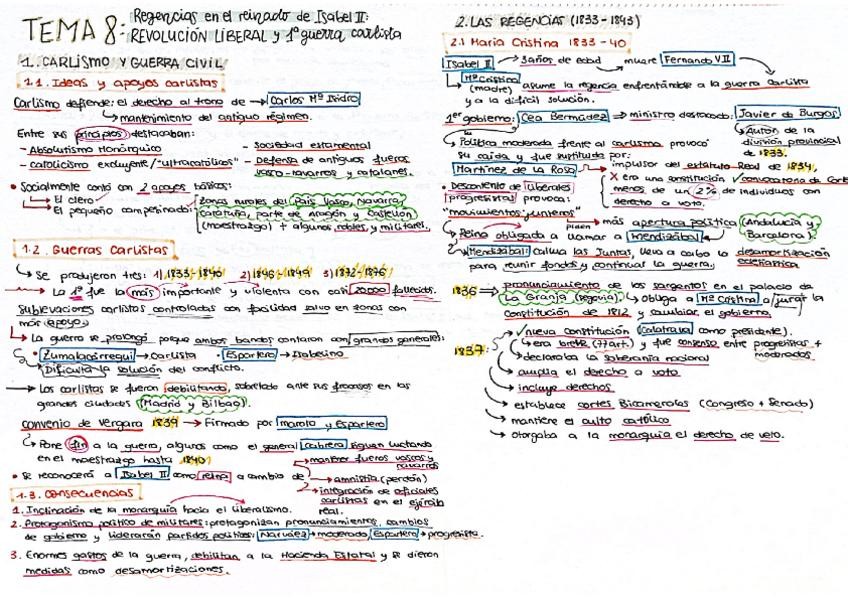 TEMA 8: Regencias en el reinado de Isabel II:
REVOLUCIÓN LIBERAL y 1ª guerra carlista
1. CARLISMO Y GUERRA CIVIL
1.1. Ideas y apoyos carlistas
Carlismo defiende: el derecho al trono de → Carlos Mª Isidro
→ mantenimiento del antiguo régimen.
Entre sus principios destacaban:
- Absolutismo Monárquico
- sociedad estamental
- catolicismo excluyente/"ultracatólicos"
- Defensa de antiguos fueros
vasco-navarros y catalanes.
• Socialmente contó con 2 apoyos básicos:
→ El clero
→ El pequeño campesinado:
zonas rurales del País Vasco, Navarra,
Cataluña, parte de Aragón y Castellón
(maestrazgo) + algunos nobles y militares.
1.2. Guerras Carlistas
→ Se produjeron tres: 1) 1833-1840 2) 1846-1849 3) 1872-1876
→ La 1ª fue la más importante y violenta con casi 20.000 fallecidos.
Sublevaciones carlistas controladas con facilidad salvo en zonas con
más apoyo.
→ La guerra se prolongó porque ambos bandos contaron con grandes generales:
• Zumalacárregui → carlista • Espartero → Isabelino
→ Dificulta la solución del conflicto.
→ Los carlistas se fueron debilitando, sobretodo ante sus fracasos en las
grandes ciudades (Madrid y Bilbao).
Convenio de Vergara 1839 → Firmado por maroto y Espartero
→ Pone fin a la guerra, algunos como el general Cabrera siguen luchando
en el maestrazgo hasta 1840
→ mantener fueros vascos y
navarros
• Se reconocerá a Isabel II como reina a cambio de → amnistía (perdón)
→ integración de oficiales
carlistas en el ejército
real.
1.3. Consecuencias
1. Inclinación de la monarquía hacia el liberalismo.
2. Protagonismo político de militares: protagonizan pronunciamientos, cambios
de gobierno y liderarán partidos políticos: Narváez → moderado, Espartero → progresista.
3. Enormes gastos de la guerra, debilitan a la Hacienda Estatal y se dieron
medidas como desamortizaciones.
2. LAS REGENCIAS (1833-1843)
2.1 Maria Cristina 1833-40
Isabel II → 3 años de edad → muere Fernando VII
→ Mª Cristina (madre) asume la regencia enfrentándose a la guerra carlista
y a la difícil solución.
1er gobierno: Cea Bermúdez → ministro destacado: Javier de Burgos
→ Autor de la
división provincial
de 1833.
→ Política moderada frente al carlismo provocó
su caída y fue sustituido por:
Martínez de La Rosa
→ impulsor del estatuto Real de 1834,
X era una constitución ✓ convocatoria de Cortes
menos de un 2% de individuos con
derecho a voto.
• Descontento de liberales
progresistas provoca:
"movimientos junteros"
piden → más apertura política (Andalucía y
Barcelona)
→ Reina obligada a llamar a Mendizábal
→ Mendizábal: calma las Juntas, lleva a cabo la desamortización
eclesiástica
para reunir fondos y continuar la guerra.
1836 → pronunciamiento de los sargentos en el palacio de
La Granja (Segovia). → obliga a Mª Cristina a jurar la
Constitución de 1812 y cambiar el gobierno.
1837: → ✓ nueva constitución (Calatrava como presidente).
→ era breve (77 art.) y fue consenso entre progresistas +
moderados
→ declaraba la soberanía nacional
→ amplía el derecho a voto
→ incluye derechos
→ establece cortes Bicamerales (Congreso + Senado)
→ mantiene el culto católico
→ otorgaba a la monarquía el derecho de veto.